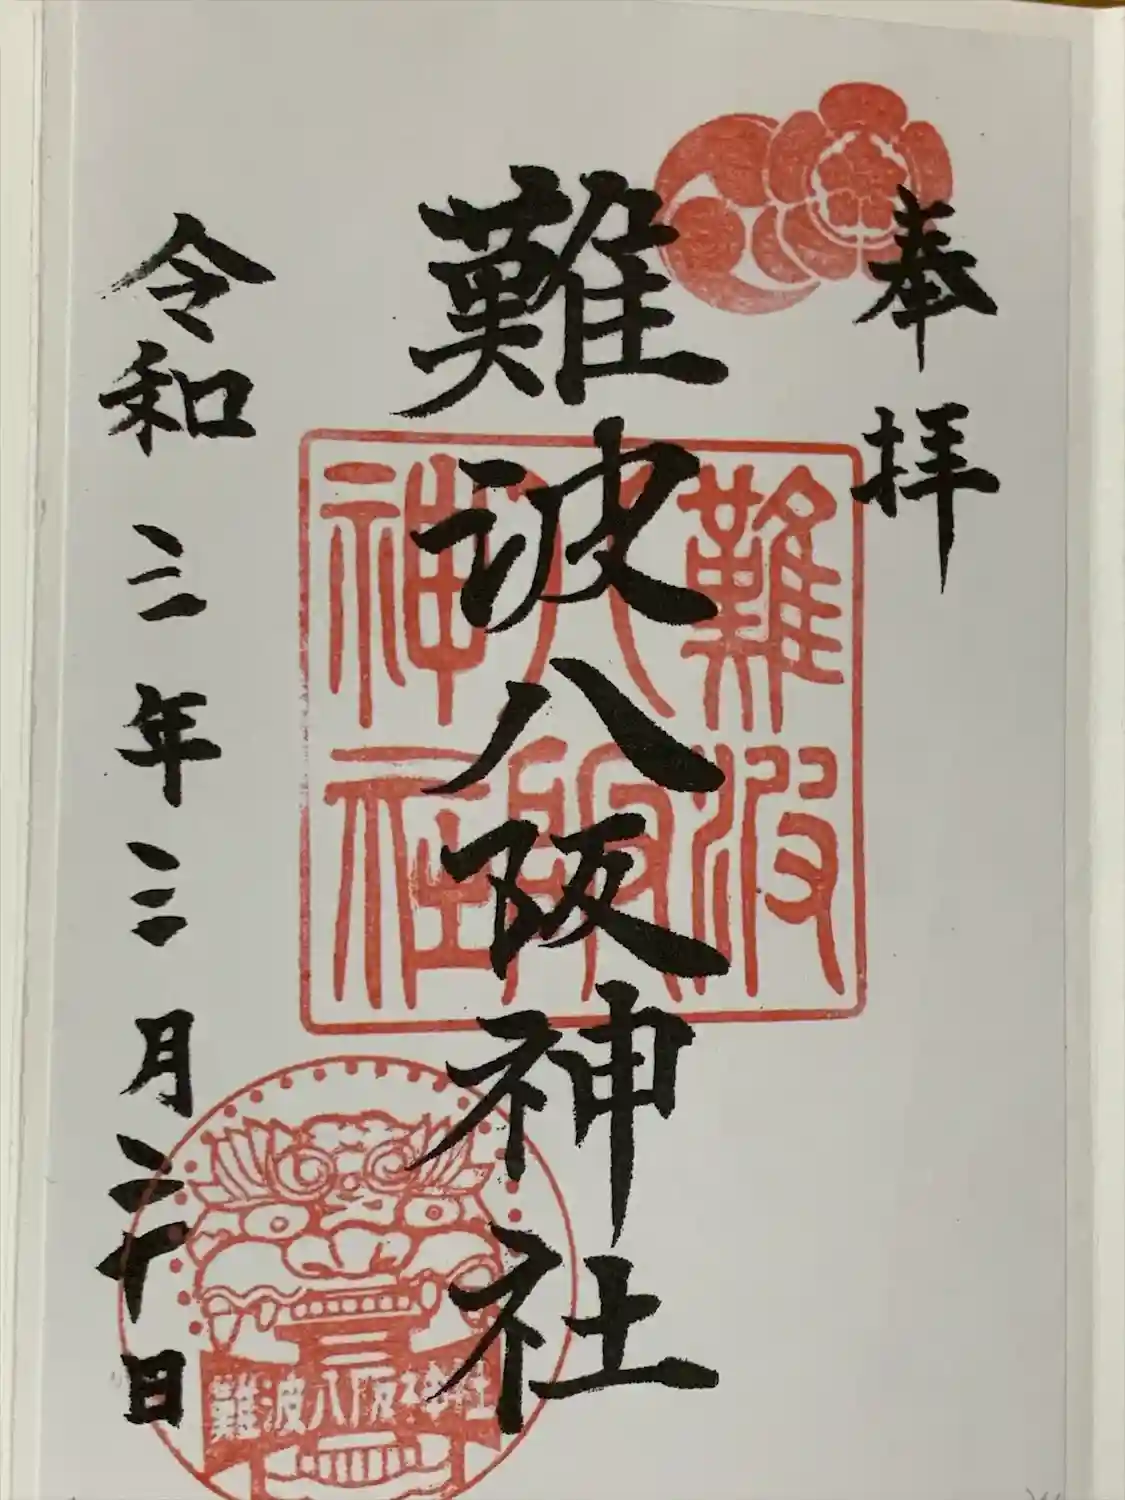 奉拝
難波八阪神社
令和三年三月二十日
難波
八阪
神社
難波八阪神社